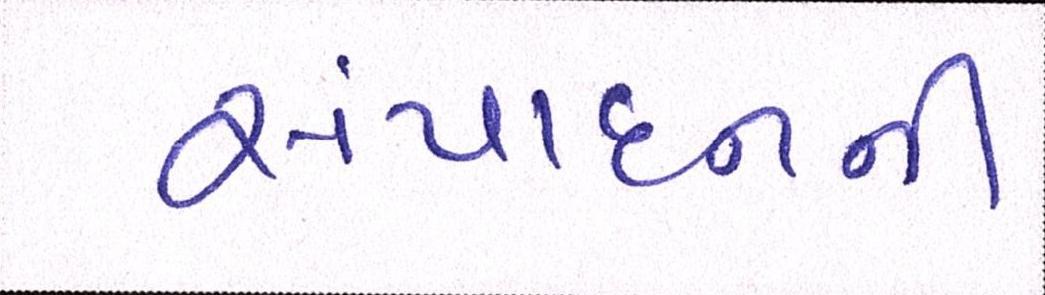 સંપાદનની